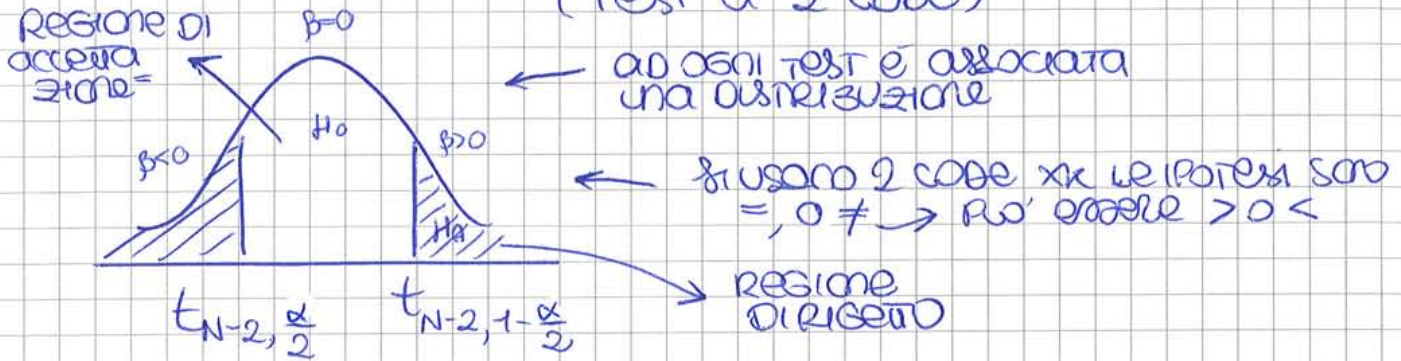 (TEST A 2 CODE)
REGIONE DI
ACCETTA
ZIONE=
β=0
AD OGNI TEST È ASSOCIATA
UNA DISTRIBUZIONE
H₀
β<0
β>0
SI USANO 2 CODE XK LE IPOTESI SONO
=, O ≠ → PUO' ESSERE > O <
HA
REGIONE
DI RIGETTO
t N-2, α/2
t N-2, 1-α/2